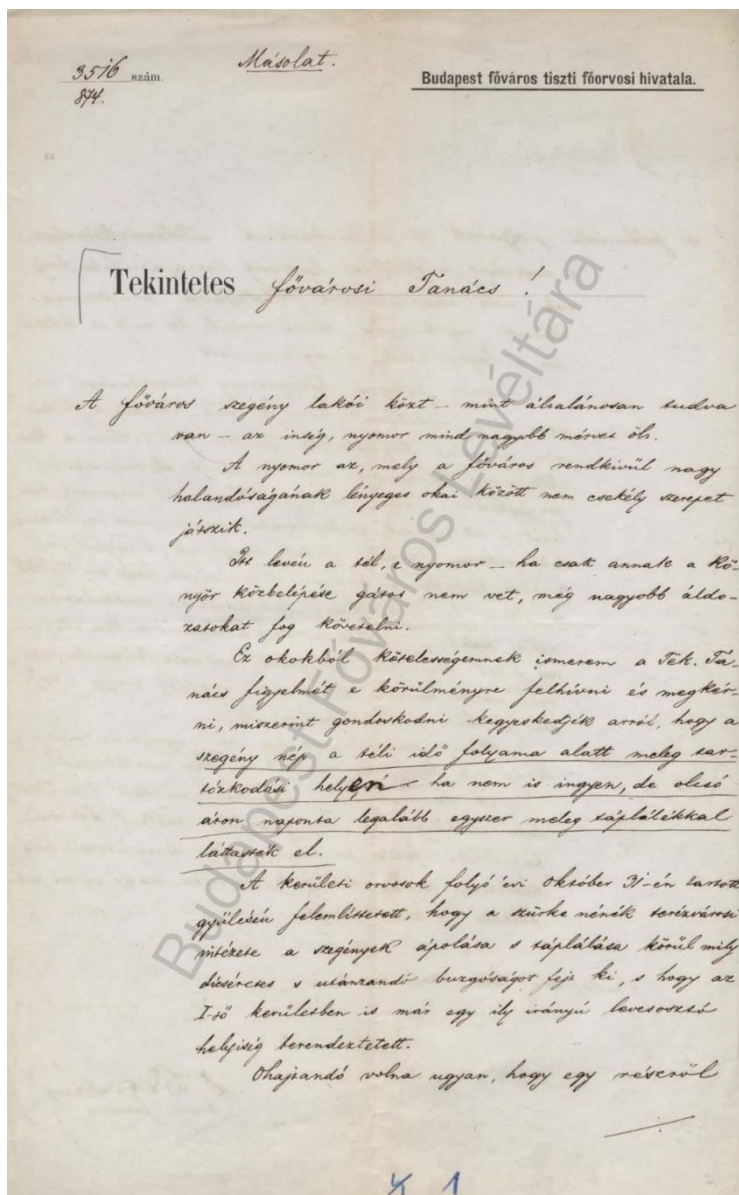 Másolat.
3516 szám.
874.
Budapest főváros tiszti főorvosi hivatala.
Tekintetes fővárosi Tanács!
A főváros szegény lakói közt – mint általánosan tudva
van – az inség, nyomor mind nagyobb mérvet ölt.
A nyomor az, mely a főváros rendkivül nagy
halandóságának lényeges okai között nem csekély szerepet
játszik.
Itt levén a tél, e nyomor – ha csak annak a kö-
nyör közbelépése gátot nem vet, még nagyobb áldo-
zatokat fog követelni.
Ez okokból kötelességemnek ismerem a Tek. Ta-
nács figyelmét e körülményre felhívni és megkér-
ni, miszerint gondoskodni kegyeskedjék arról, hogy a
szegény nép a téli idő folyama alatt meleg tar-
tózkodási helyen ha nem is ingyen, de olcsó
áron naponta legalább egyszer meleg táplálékkal
láttassék el.
A kerületi orvosok folyó évi Október 31-én tartott
gyülésén felemlittetett, hogy a szürke nénék terézvárosi
intézete a szegények ápolása s táplálása körül mily
dicséretes s utánzandó buzgóságot fejt ki, s hogy az
I-ső kerületben is már egy ily irányú levesosztó
helyiség berendeztetett.
Ohajtandó volna ugyan, hogy egy részről
Budapest Főváros Levéltára
1